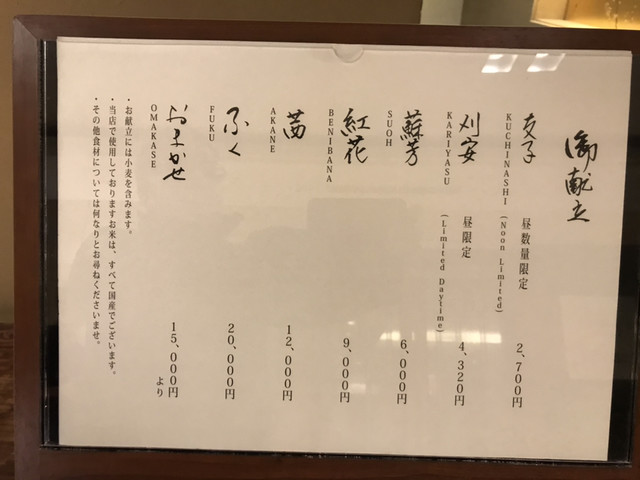 御献立
支子
KUCHINASHI
昼数量限定
(Noon Limited)
2,700円
刈安
KARIYASU
昼限定
(Limited Daytime)
4,320円
蘇芳
SUOH
6,000円
紅花
BENIBANA
9,000円
茜
AKANE
12,000円
ふく
FUKU
20,000円
おまかせ
OMAKASE
15,000円より
・お献立には小麦を含みます。
・当店で使用しておりますお米は、すべて国産でございます。
・その他食材については何なりとお尋ねくださいませ。